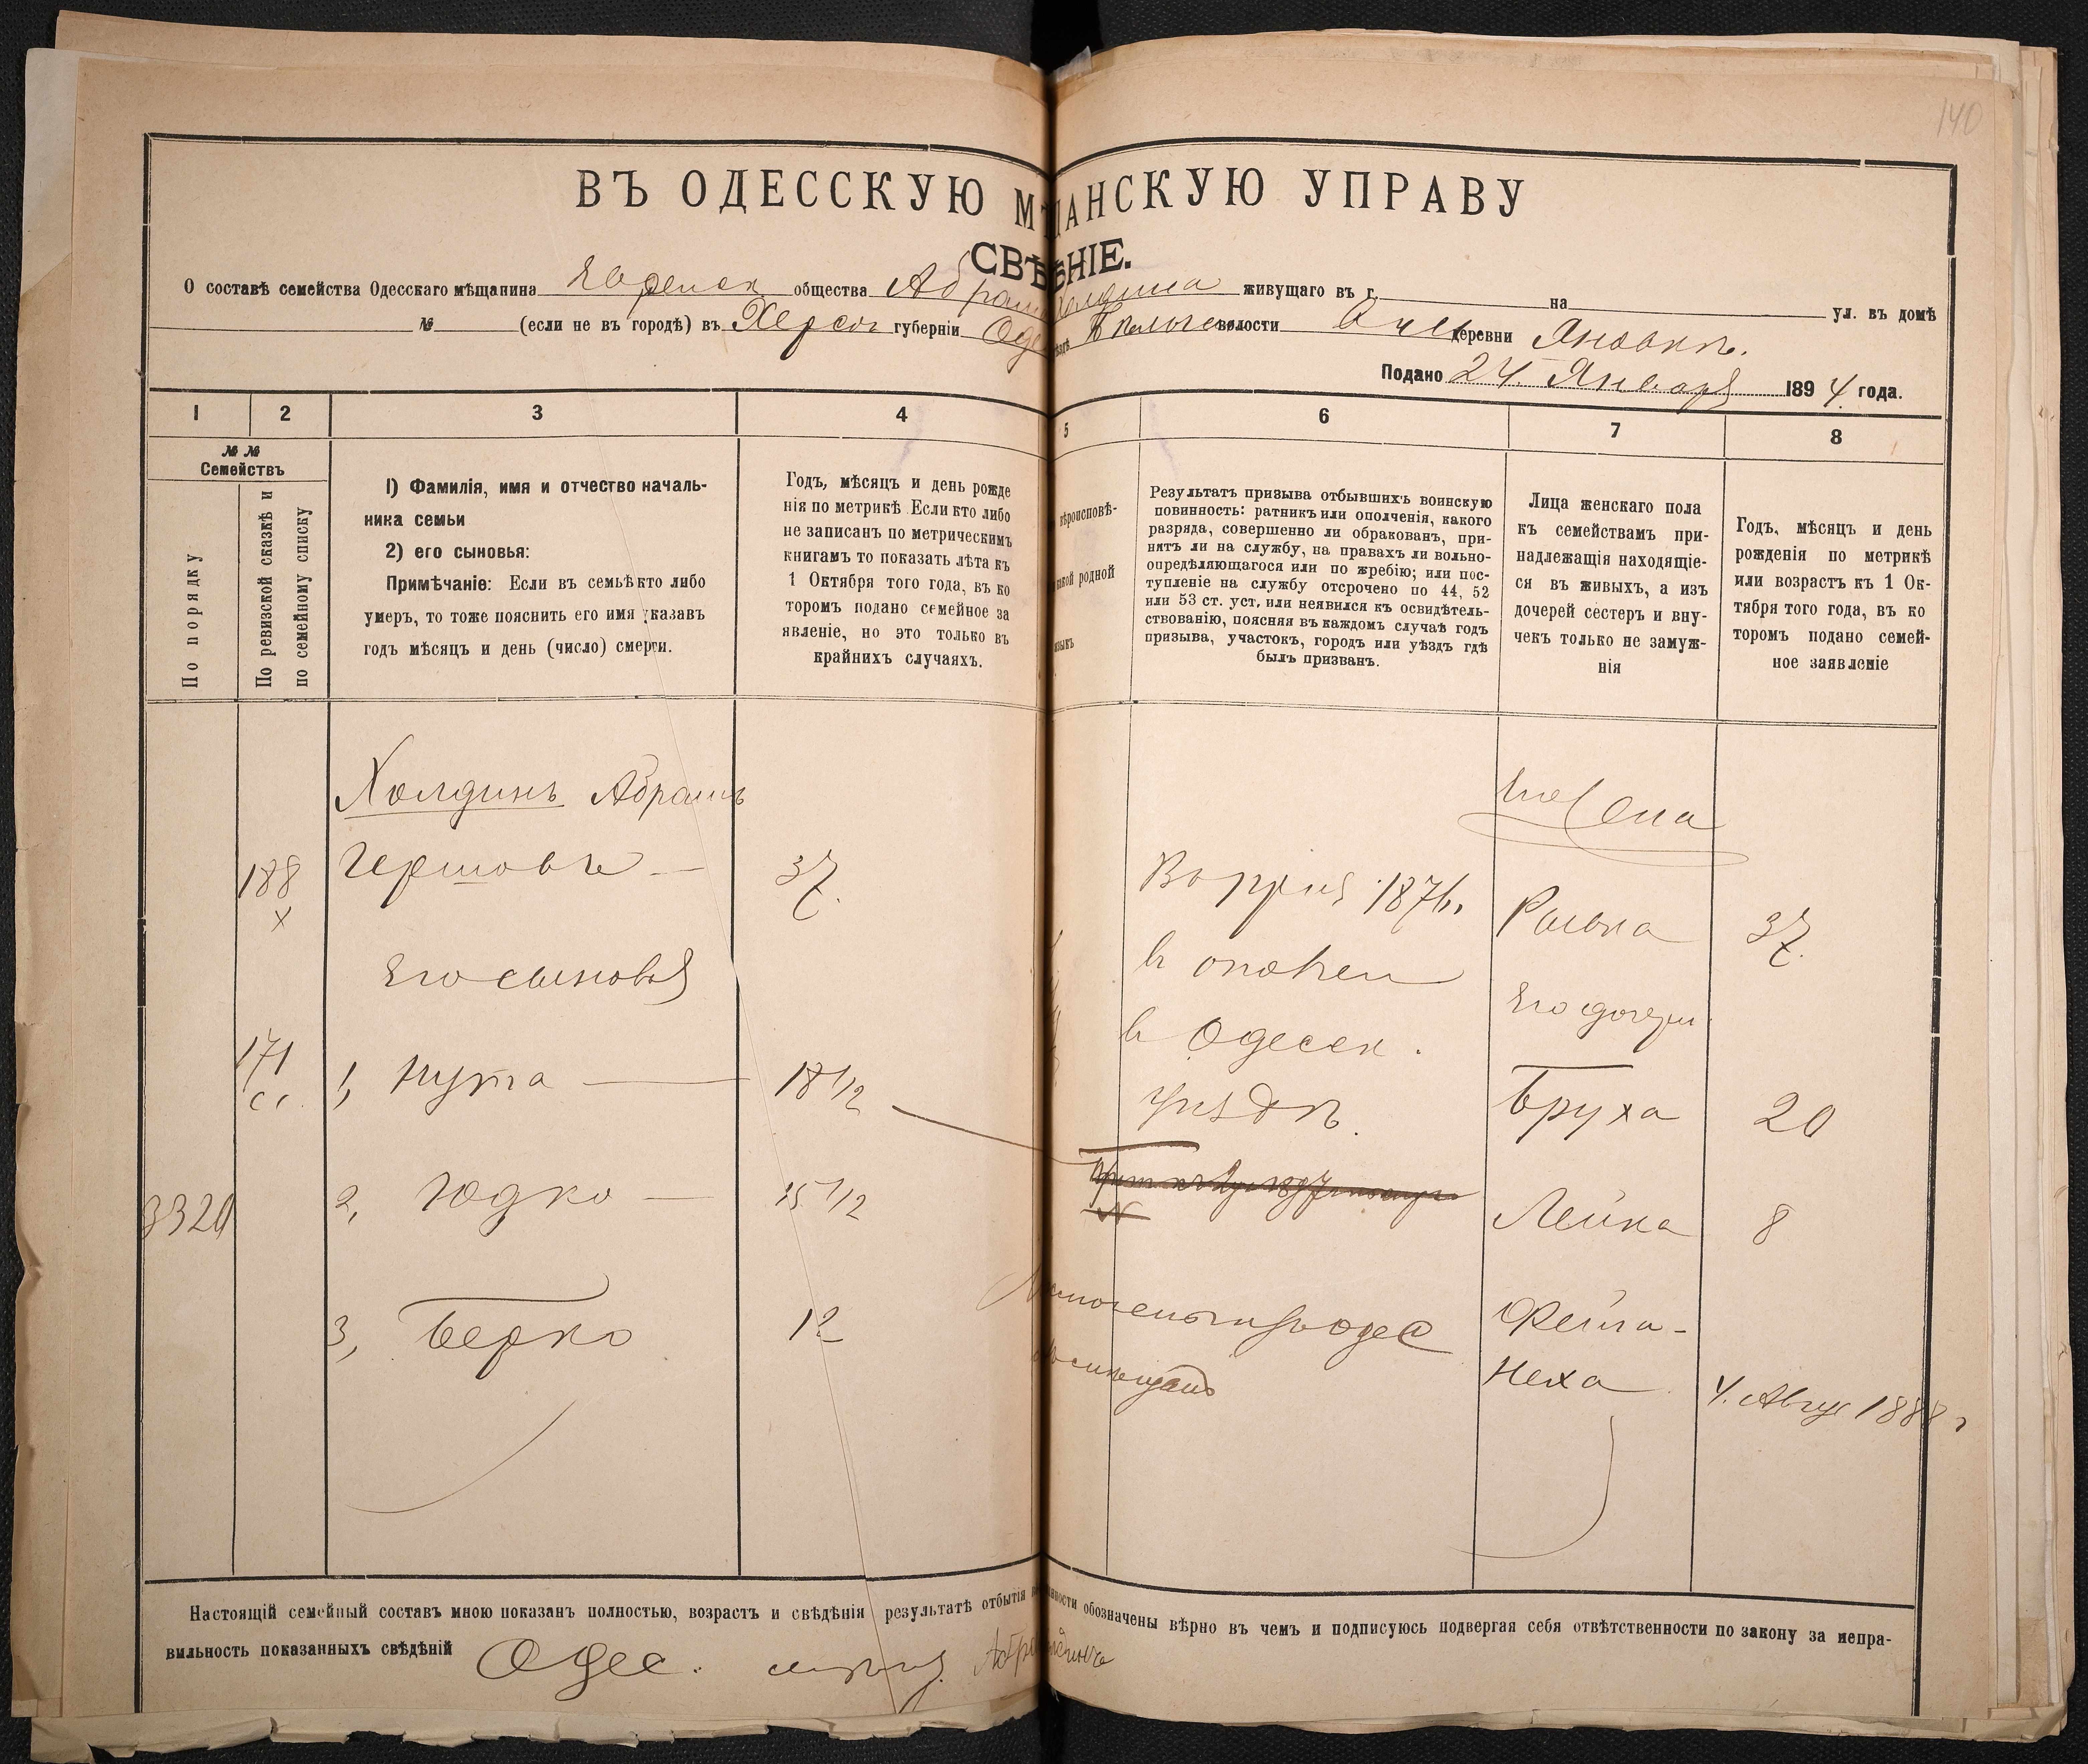 140
ВЪ ОДЕССКУЮ М ЩАНСКУЮ УПРАВУ
СВѢ ѢНІЕ.
О составѣ семейства Одесскаго мѣщанина Еврейск общества Абрам Холдина живущаго въ г. на ул. въ домѣ
№ (если не въ городѣ) въ Херсон губерніи Оде ѣздѣ волости деревни Яновкѣ.
Подано 24 Января 1894 года.
1 2 3 4 5 6 7 8
№ № Семействъ
По порядку
По ревизской сказкѣ и по семейному списку
1) Фамилія, имя и отчество началь-
ника семьи
2) его сыновья:
Примѣчаніе: Если въ семьѣ кто либо
умеръ, то тоже пояснить его имя указавъ
годъ мѣсяцъ и день (число) смерти.
Годъ, мѣсяцъ и день рожде
нія по метрикѣ Если кто либо
не записанъ по метрическимъ
книгамъ то показать лѣта къ
1 Октября того года, въ ко
торомъ подано семейное за
явленіе, но это только въ
крайнихъ случаяхъ.
ѣроисповѣ-
акой родной
языкъ
Результатъ призыва отбывшихъ воинскую
повинность: ратникъ или ополченія, какого
разряда, совершенно ли обракованъ, при-
нятъ ли на службу, на правахъ ли вольно-
опредѣляющагося или по жребію; или пос-
тупленіе на службу отсрочено по 44, 52
или 53 ст. уст. или неявился къ освидѣтель-
ствованію, поясняя въ каждомъ случаѣ годъ
призыва, участокъ, городъ или уѣздъ гдѣ
былъ призванъ.
Лица женскаго пола
къ семействамъ при-
надлежащія находящіе-
ся въ живыхъ, а изъ
дочерей сестеръ и вну-
чекъ только не замуж-
нія
Годъ, мѣсяцъ и день
рожденія по метрикѣ
или возрастъ къ 1 Ок-
тября того года, въ ко
торомъ подано семей-
ное заявленіе
Холдинъ Абрамъ
188 х Гершовъ — 37.
Его сыновья
171 сс. 1, Нута — 18 1/2
3320 2, Юдко — 15 1/2
3, Берко 12
1876г.
в
в Одесск.
уѣздѣ.
Жена
37.
Его дочери
Бруха 20
Лейка 8
Фейга-
Неха 4. Авгус 1888 г
Настоящій семейный составъ мною показанъ полностью, возрастъ и свѣдѣнія результатѣ отбытія нности обозначены вѣрно въ чемъ и подписуюсь подвергая себя отвѣтственности по закону за непра-
вильность показанныхъ свѣдѣній Одес.